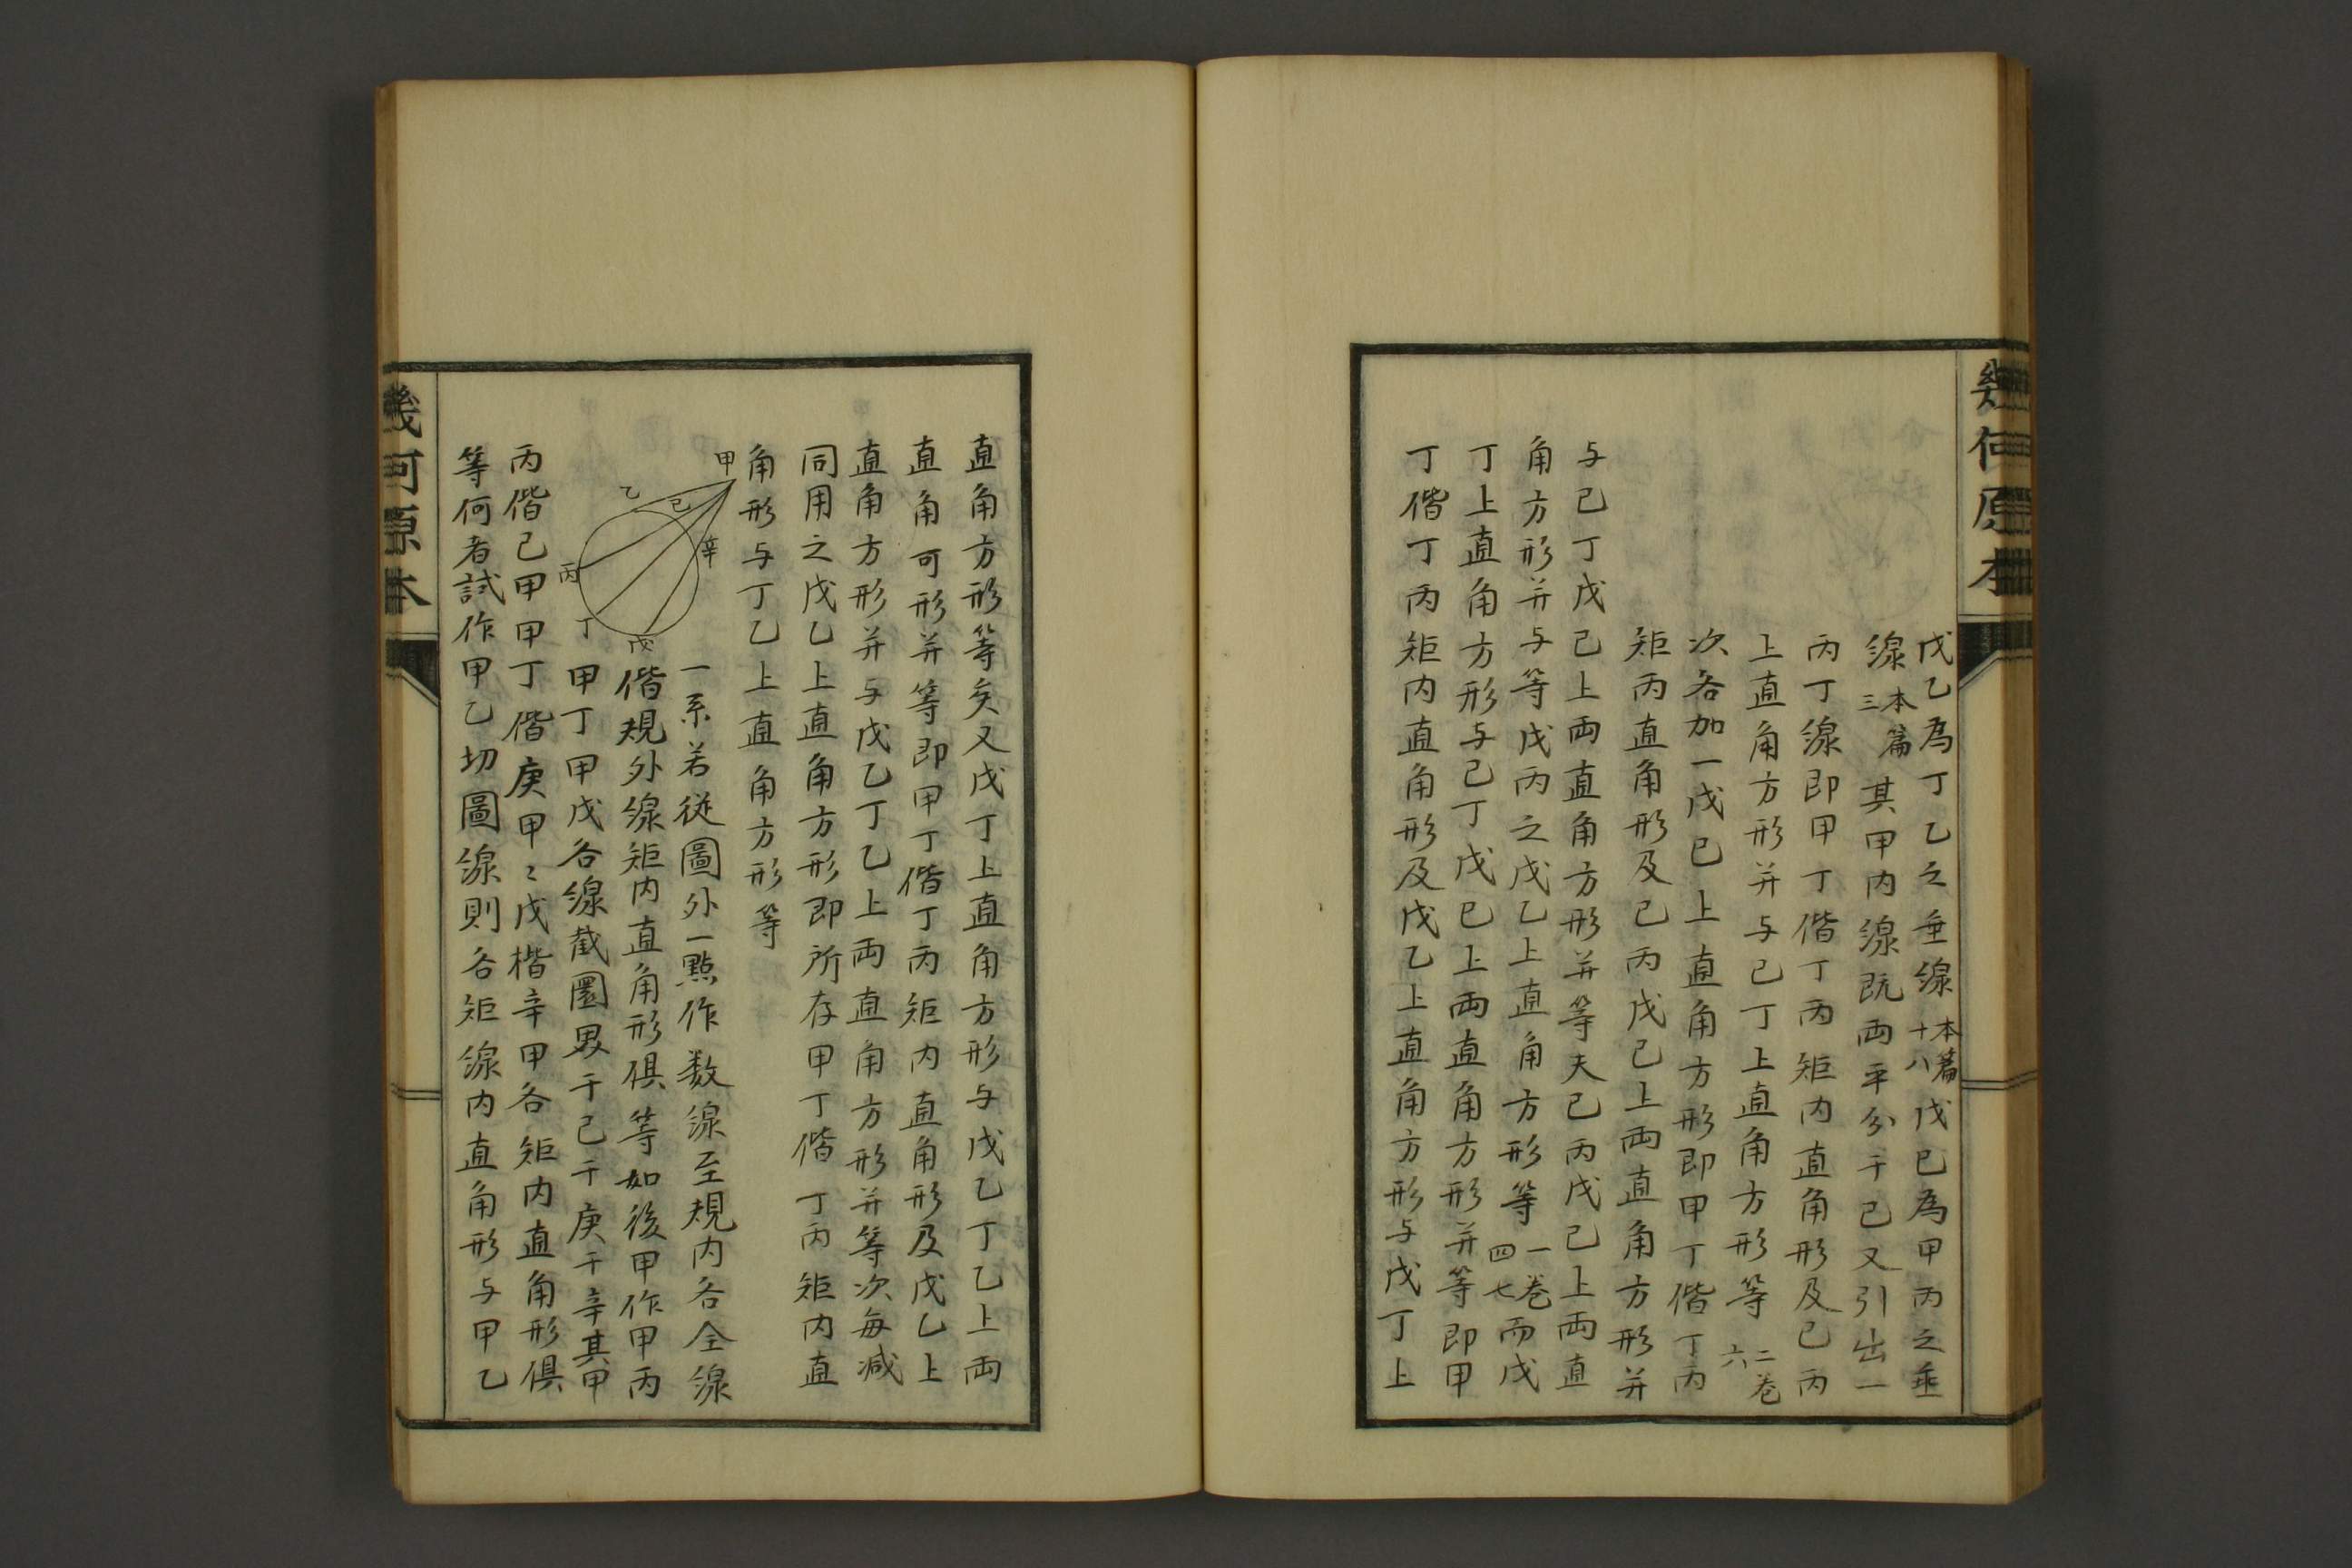 幾何原本
戊乙為丁乙之垂線本篇十八戊已為甲丙之垂
線本篇三其甲丙線既両平分于已又引出一
丙丁線即甲丁偕丁丙矩内直角形及已丙
上直角方形并与已丁上直角方形等二巻六
次各加一戊已上直角方形即甲丁偕丁丙
矩丙直角形及已丙戊已上両直角方形并
与已丁戊已上両直角方形并等夫已丙戊已上両直
角方形并与等戊丙之戊乙上直角方形等一巻四七而戊
丁上直角方形与已丁戊已上両直角方形并等即甲
丁偕丁丙矩内直角形及戊乙上直角方形与戊丁上
直角方形等矣又戊丁上直角方形与戊乙丁乙上両
直角可形并等即甲丁偕丁丙矩内直角形及戊乙上
直角方形并与戊乙丁乙上両直角方形并等次毎减
同用之戊乙上直角方形即所存甲丁偕丁丙矩内直
角形与丁乙上直角方形等
甲
乙
已
辛
丙
丁
戊
一系若従圖外一點作数線至規内各全線
偕規外線矩内直角形俱等如後甲作甲丙
甲丁甲戊各線截圜界于已于庚于辛其甲
丙偕已甲甲丁偕庚甲〻戊楷辛甲各矩内直角形俱
等何者試作甲乙切圖線則各矩線内直角形与甲乙
幾何原本